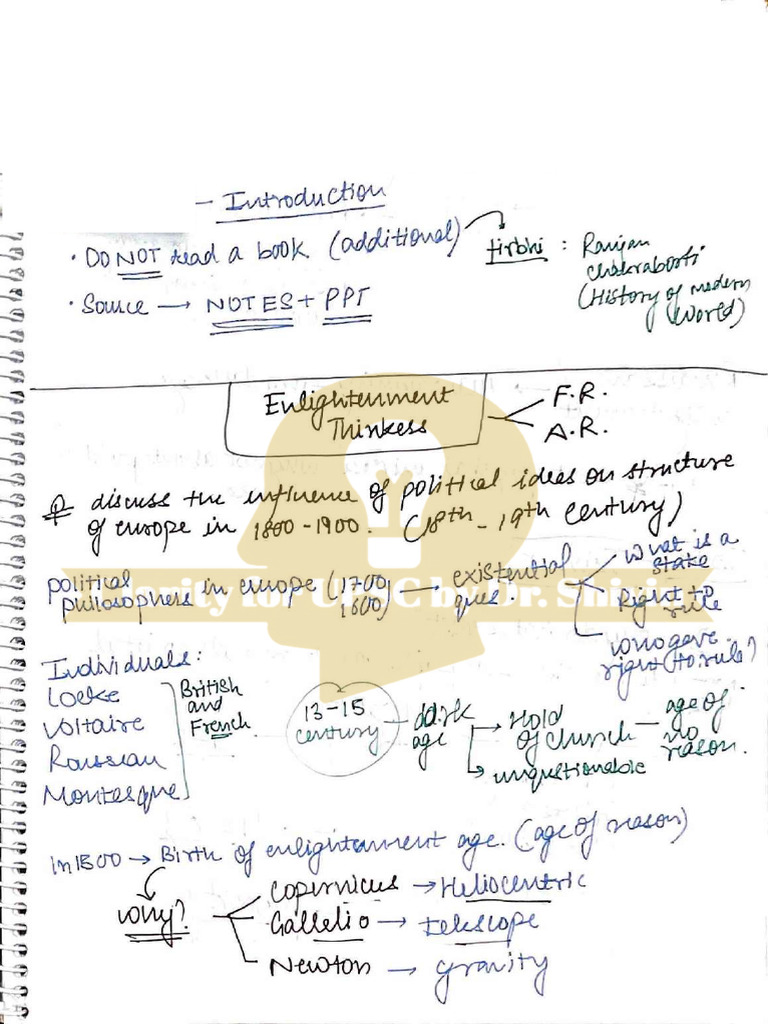 - Introduction
• DO NOT read a book. (additional) tirbhi : Ranjan
Chakraborti
(History of modern
World)
• Source → NOTES + PPT
Enlightenment
Thinkess
F.R.
A.R.
Q discuss the influence of political ideas on structure
of europe in 1800-1900. (18th - 19th century)
political
philosophers in europe (1700, 1800) — existential
ques:
What is a
state
Right to
rule
who gave
right (to rule?)
Clarity for UPSC by Dr. Shivin
Individuals:
Locke
Voltaire
Rousseau
Montesque
British
and
French.
13-15
century
dark
age
→ Hold
of church — age of
no
reason.
→ unqustionable
in 1500 → Birth of enlightenment age. (age of reason)
why?
Copernicus → Heliocentric
Gallelio → telescope
Newton → gravity